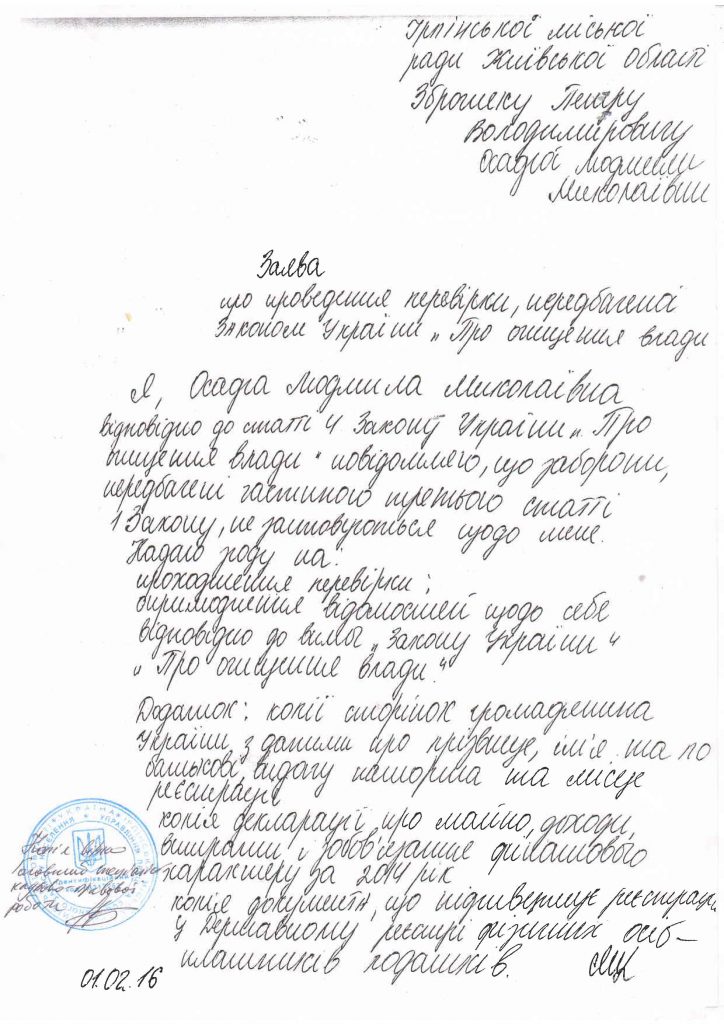 Ірпінської міської
ради Київської області
Зброжеку Петру
Володимировичу
Осадчої Людмили
Миколаївни
Заява
про проведення перевірки, передбаченої
Законом України „Про очищення влади
Я, Осадча Людмила Миколаївна
відповідно до статті 4 Закону України „Про
очищення влади" повідомляю, що заборони,
передбачені частиною третьою статті
1 Закону, не застовуються щодо мене.
Надаю згоду на:
проходження перевірки;
оприлюднення відомостей щодо себе
відповідно до вимог „Закону України"
„Про очищення влади."
Додаток: копії сторінок громадянина
України з даними про прізвище, ім'я та по
батькові, видачу паспорта та місце
реєстрації
копія декларації про майно, доходи,
витрати і зобов'язання фінансового
характеру за 2014 рік
копія документа, що підтверджує реєстрацію
у Державному реєстрі фізичних осіб –
платників податків.
Копія вірна
Головний спеціаліст
кадрової
роботи
01.02.16